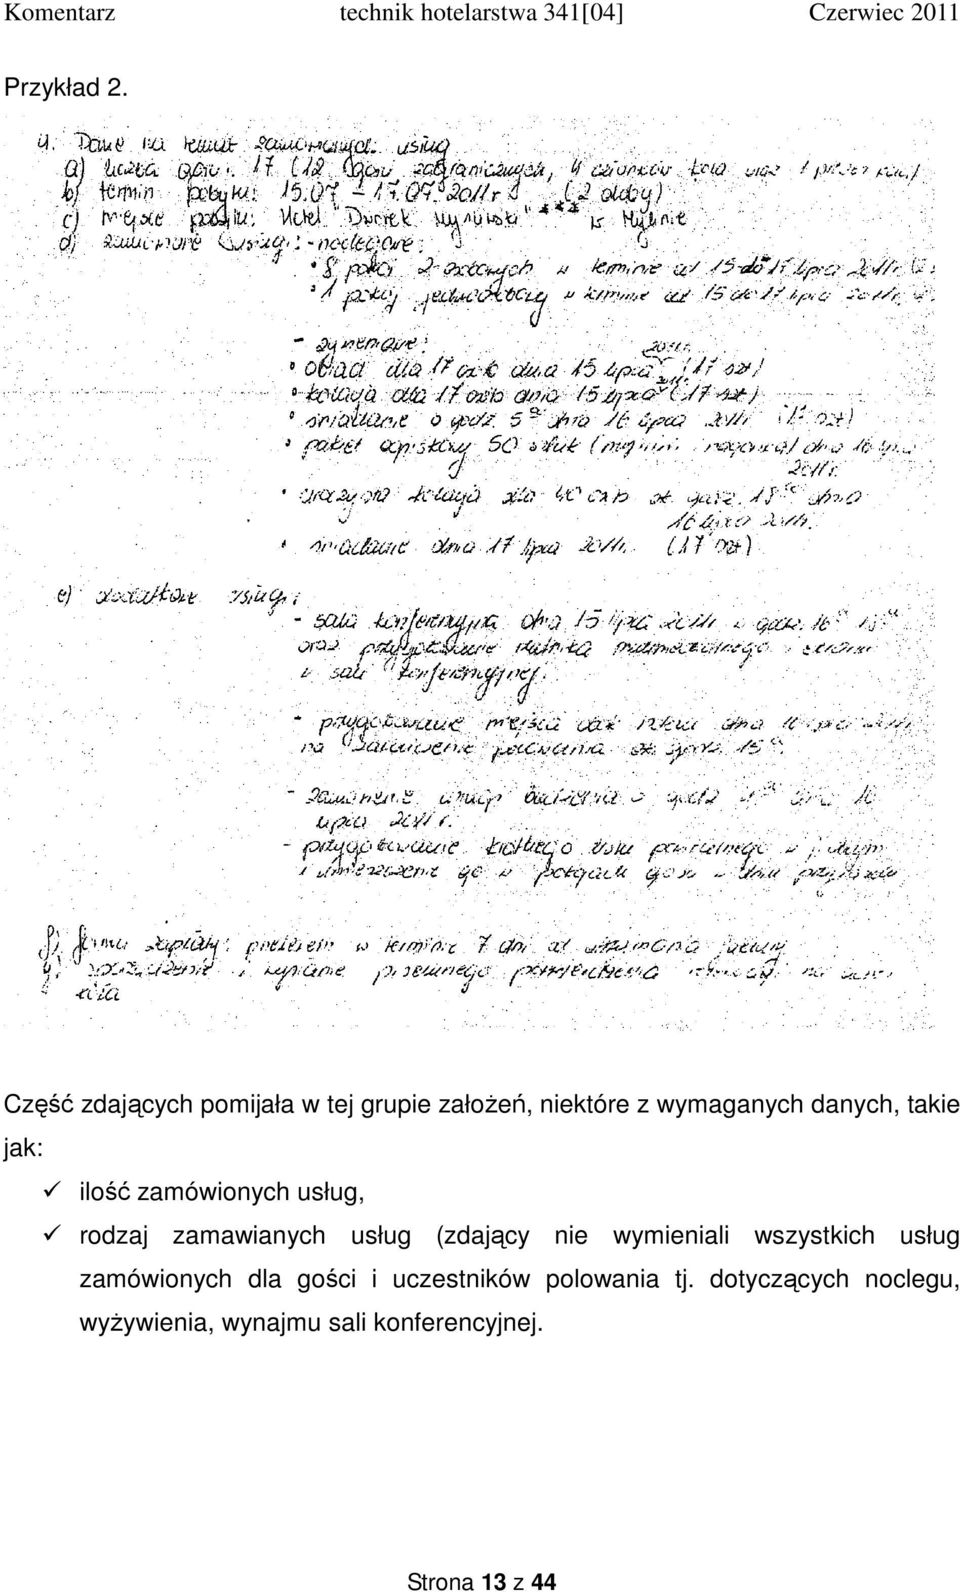 Komentarz technik hotelarstwa 341[04] Czerwiec 2011
Przykład 2.
4. Dane na temat zamówionych usług
a) liczba gości: 17 (12 gości zagranicznych, 4 członków koła oraz 1
b) termin pobytu: 15.07 – 17.07.2011r (2 doby)
c) miejsce pobytu: Hotel "Dworek Młynarski" *** w Młynie
d) zamówione usługi: - noclegowe:
• 8 pokoi 2-osobowych w terminie od 15 do 17 lipca 2011r.
• 1 pokój jednoosobowy w terminie od 15 do 17 lipca 2011r.
- żywieniowe:
• obiad dla 17 osób dnia 15 lipca 2011r. (17 szt)
• kolacja dla 17 osób dnia 15 lipca 2011r. (17 szt)
• śniadanie o godz. 5⁰⁰ dnia 16 lipca 2011r. (17 szt)
• pakiet 50 sztuk dnia 16 lipca 2011r.
• uroczysta kolacja dla 40 osób od godz. 18⁰⁰ dnia
16 lipca 2011r.
• śniadanie dnia 17 lipca 2011r. (17 szt)
e) dodatkowe usługi:
- sala konferencyjna dnia 15 lipca 2011r. w godz. 16⁰⁰ 18⁰⁰
oraz przygotowanie rzutnika multimedialnego i ekranu
w sali konferencyjnej.
- przygotowanie miejsca dnia 16 lipca 2011r.
na zakończenie polowania od godz. 15⁰⁰.
- zamówienie usługi budzenia o godz 4 dnia 16
lipca 2011r.
- przygotowanie krótkiego listu powitalnego w j.
i umieszczenie go w pokojach gości w dniu przyjazdu
f) forma zapłaty: przelewem w terminie 7 dni od otrzymania faktury
g) sporządzenie i wysłanie pisemnego potwierdzenia rezerwacji na
koła
Część zdających pomijała w tej grupie założeń, niektóre z wymaganych danych, takie
jak:
✓ ilość zamówionych usług,
✓ rodzaj zamawianych usług (zdający nie wymieniali wszystkich usług
zamówionych dla gości i uczestników polowania tj. dotyczących noclegu,
wyżywienia, wynajmu sali konferencyjnej.
Strona 13 z 44